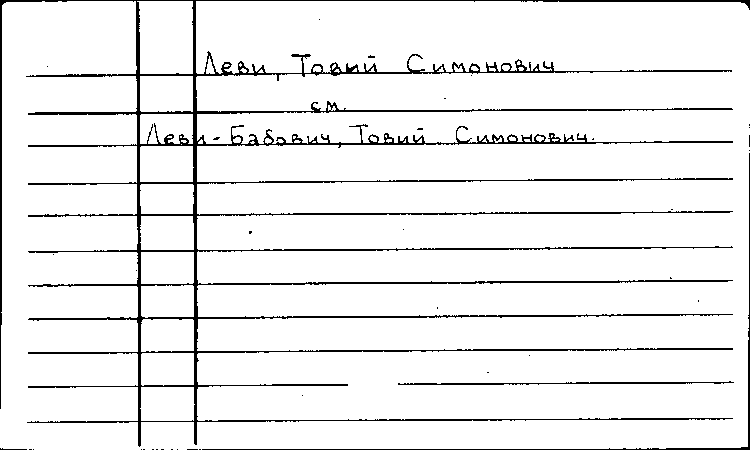 Леви, Товий Симонович
см.
Леви-Бабович, Товий Симонович.